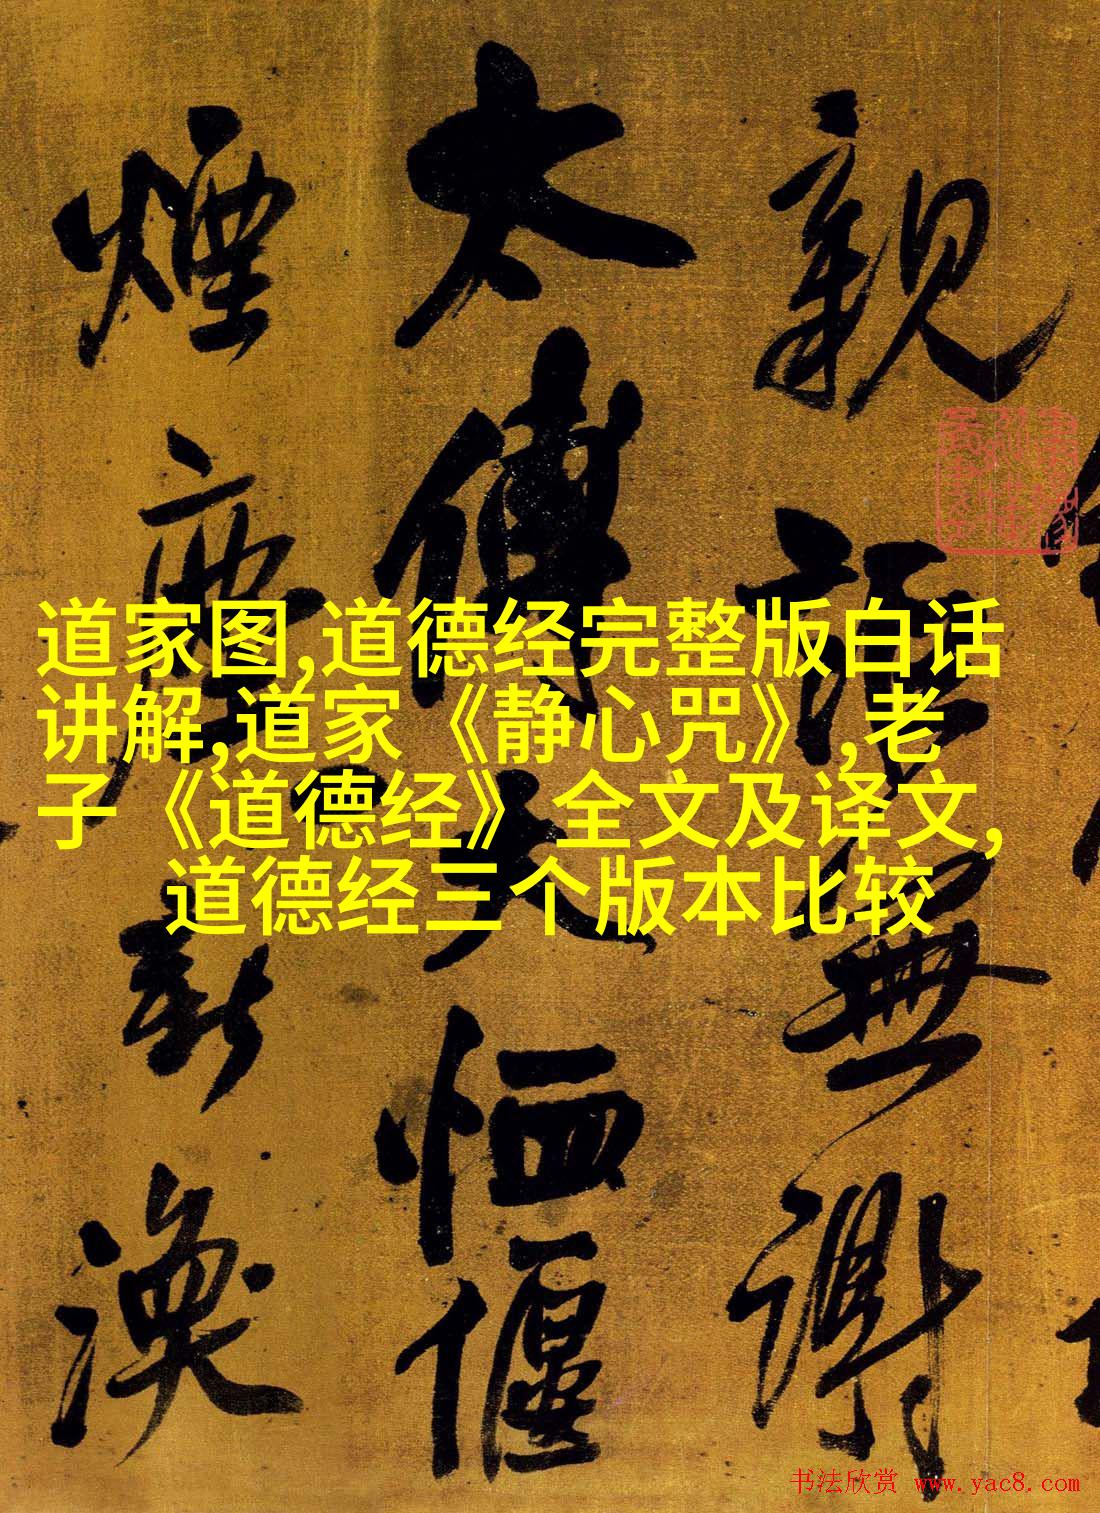 親無謝
太傅
煙塵新渙
道家图,道德经完整版白话
讲解,道家《静心咒》,老
子《道德经》全文及译文,
道德经三个版本比较
书法欣赏 www.yac8.com